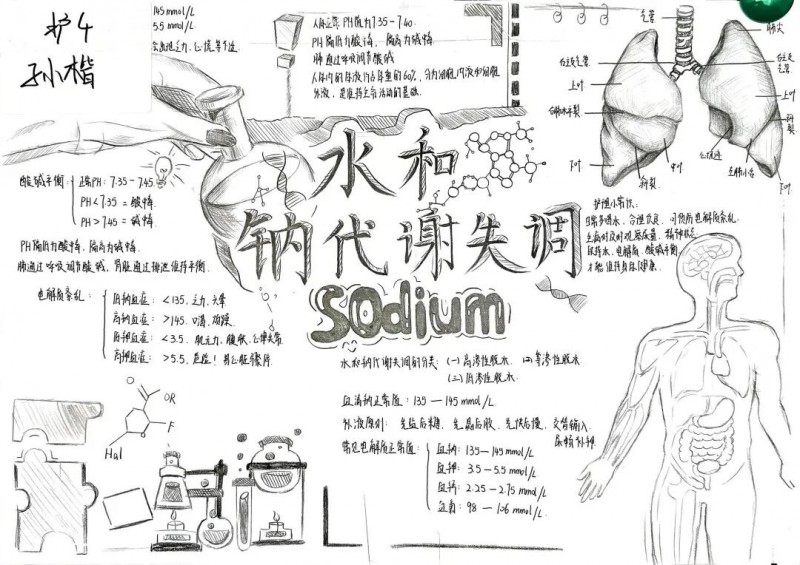 护4
孙楷
145 mmol/L
5.5 mmol/L
人体正常PH值为7.35-7.40.
PH偏低为酸中毒, 偏高为碱中毒
肺通过呼吸调节酸碱
人体内的体液约占体重的60%, 分为细胞内液和细胞
外液, 是维持生命活动的基础.
气管
肺尖
上叶
上叶
斜裂
中叶
斜裂
下叶
下叶
心切迹
左肺小舌
水和
钠代谢失调
SOdium
酸碱平衡:
正常PH: 7.35-7.45.
PH<7.35 = 酸中毒.
PH>7.45 = 碱中毒.
PH偏低为酸中毒, 偏高为碱中毒.
肺通过呼吸调节酸碱, 肾脏通过排泄维持平衡.
电解质紊乱:
低钠血症: <135, 乏力、头晕
高钠血症: >145. 口渴、烦躁.
低钾血症: <3.5, 肌无力、腹胀、心律失常.
高钾血症: >5.5, 危险! 易心脏骤停.
护理小常识:
日常多喝水, 合理饮食, 可预防电解质紊乱.
生病时及时观察尿量、精神状态
保持水、电解质、酸碱平衡,
才能维持身体健康.
水和钠代谢失调的分类: (一) 高渗性脱水 (二) 等渗性脱水
(三) 低渗性脱水
血清钠正常值: 135—145 mmol/L
补液原则: 先盐后糖、先晶后胶、先快后慢、交替输入、
尿畅补钾.
常见电解质正常值:
血钠: 135—145 mmol/L
血钾: 3.5—5.5 mmol/L
血钙: 2.25—2.75 mmol/L
血氯: 98—106 mmol/L.
O
OR
F
Hal